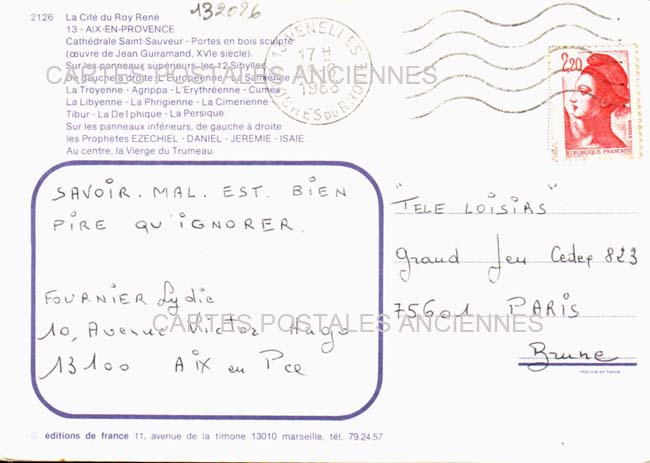 2126 La Cité du Roy René
132026
13 - AIX-EN-PROVENCE
Cathédrale Saint-Sauveur - Portes en bois sculpté
(œuvre de Jean Guiramand, XVIe siècle).
Sur les panneaux supérieurs, les 12 Sibylles
de gauche à droite : L'Européenne - La Samienne
La Troyenne - Agrippa - L'Erythréenne - Cumes
La Libyenne - La Phrigienne - La Cimerienne
Tibur - La Delphique - La Persique.
Sur les panneaux inférieurs, de gauche à droite
les Prophètes EZECHIEL - DANIEL - JEREMIE - ISAIE.
Au centre, la Vierge du Trumeau.
VENELLES
17 H
BOUCHES DU RHONE
2,20
REPUBLIQUE FRANCAISE
CARTES POSTALES ANCIENNES
SAVOIR. MAL. EST. BIEN
PIRE QU'IGNORER.
FOURNIER Lydie
10, Avenue Victor Hugo
13100 AIX en Pce
"TELE LOISIRS"
Grand Jeu Cedex 823
75601 PARIS
Brune
imprimé en france
CARTES POSTALES ANCIENNES
© éditions de france 11, avenue de la timone 13010 marseille, tél. 79.24.57